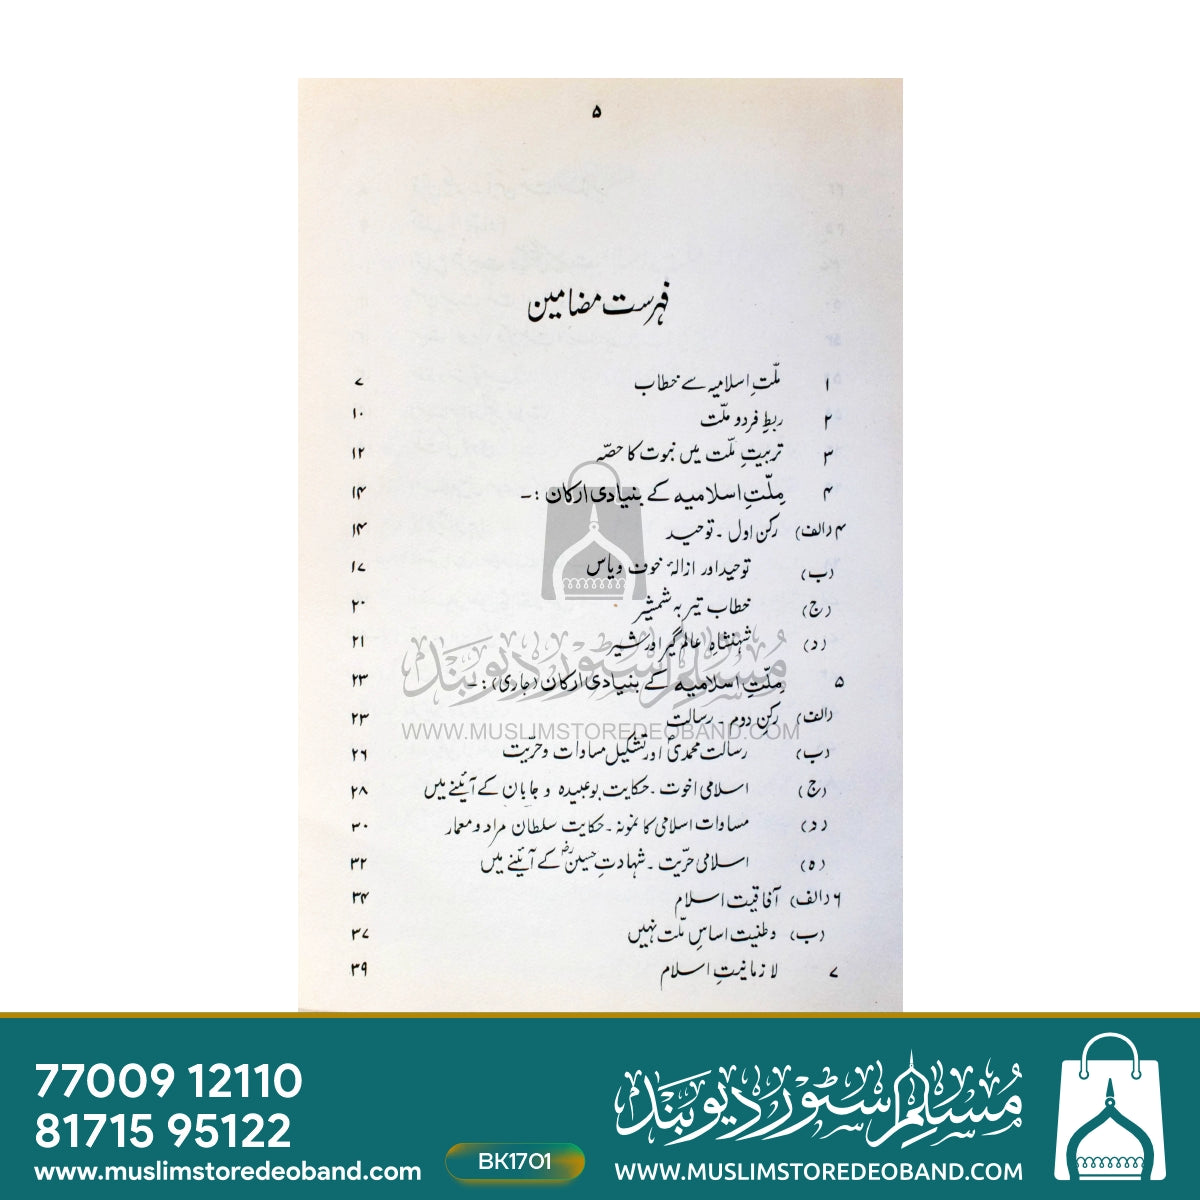 ۵
فہرست مضامین
۱ ملّتِ اسلامیہ سے خطاب ۷
۲ ربطِ فرد و ملّت ۱۰
۳ تربیتِ ملّت میں نبوت کا حصّہ ۱۲
۴ مِلّتِ اسلامیہ کے بنیادی ارکان :۔ ۱۴
۴ (الف) رکن اول ۔ توحید ۱۴
(ب) توحید اور ازالۂ خوف و یاس ۱۷
(ج) خطاب تیر بہ شمشیر ۲۰
(د) شہنشاہِ عالمگیر اور شیر ۲۱
۵ مِلّتِ اسلامیہ کے بنیادی ارکان (جاری) :۔ ۲۳
(الف) رکن دوم ۔ رسالت ۲۳
(ب) رسالت محمدیؐ اور تشکیل مساوات و حریّت ۲۶
(ج) اسلامی اخوت ۔ حکایت بوعبیدہ و جابان کے آئینے میں ۲۸
(د) مساوات اسلامی کا نمونہ ۔ حکایت سلطان مراد و معمار ۳۰
(ہ) اسلامی حریّت ۔ شہادتِ حسینؓ کے آئینے میں ۳۲
۶ (الف) آفاقیت اسلام ۳۴
(ب) وطنیت اساسِ ملّت نہیں ۳۷
۷ لازمانیتِ اسلام ۳۹
مسلم سٹور دیوبند
WWW.MUSLIMSTOREDEOBAND.COM
77009 12110
81715 95122
www.muslimstoredeoband.com
BK1701
مسلم سٹور دیوبند
WWW.MUSLIMSTOREDEOBAND.COM